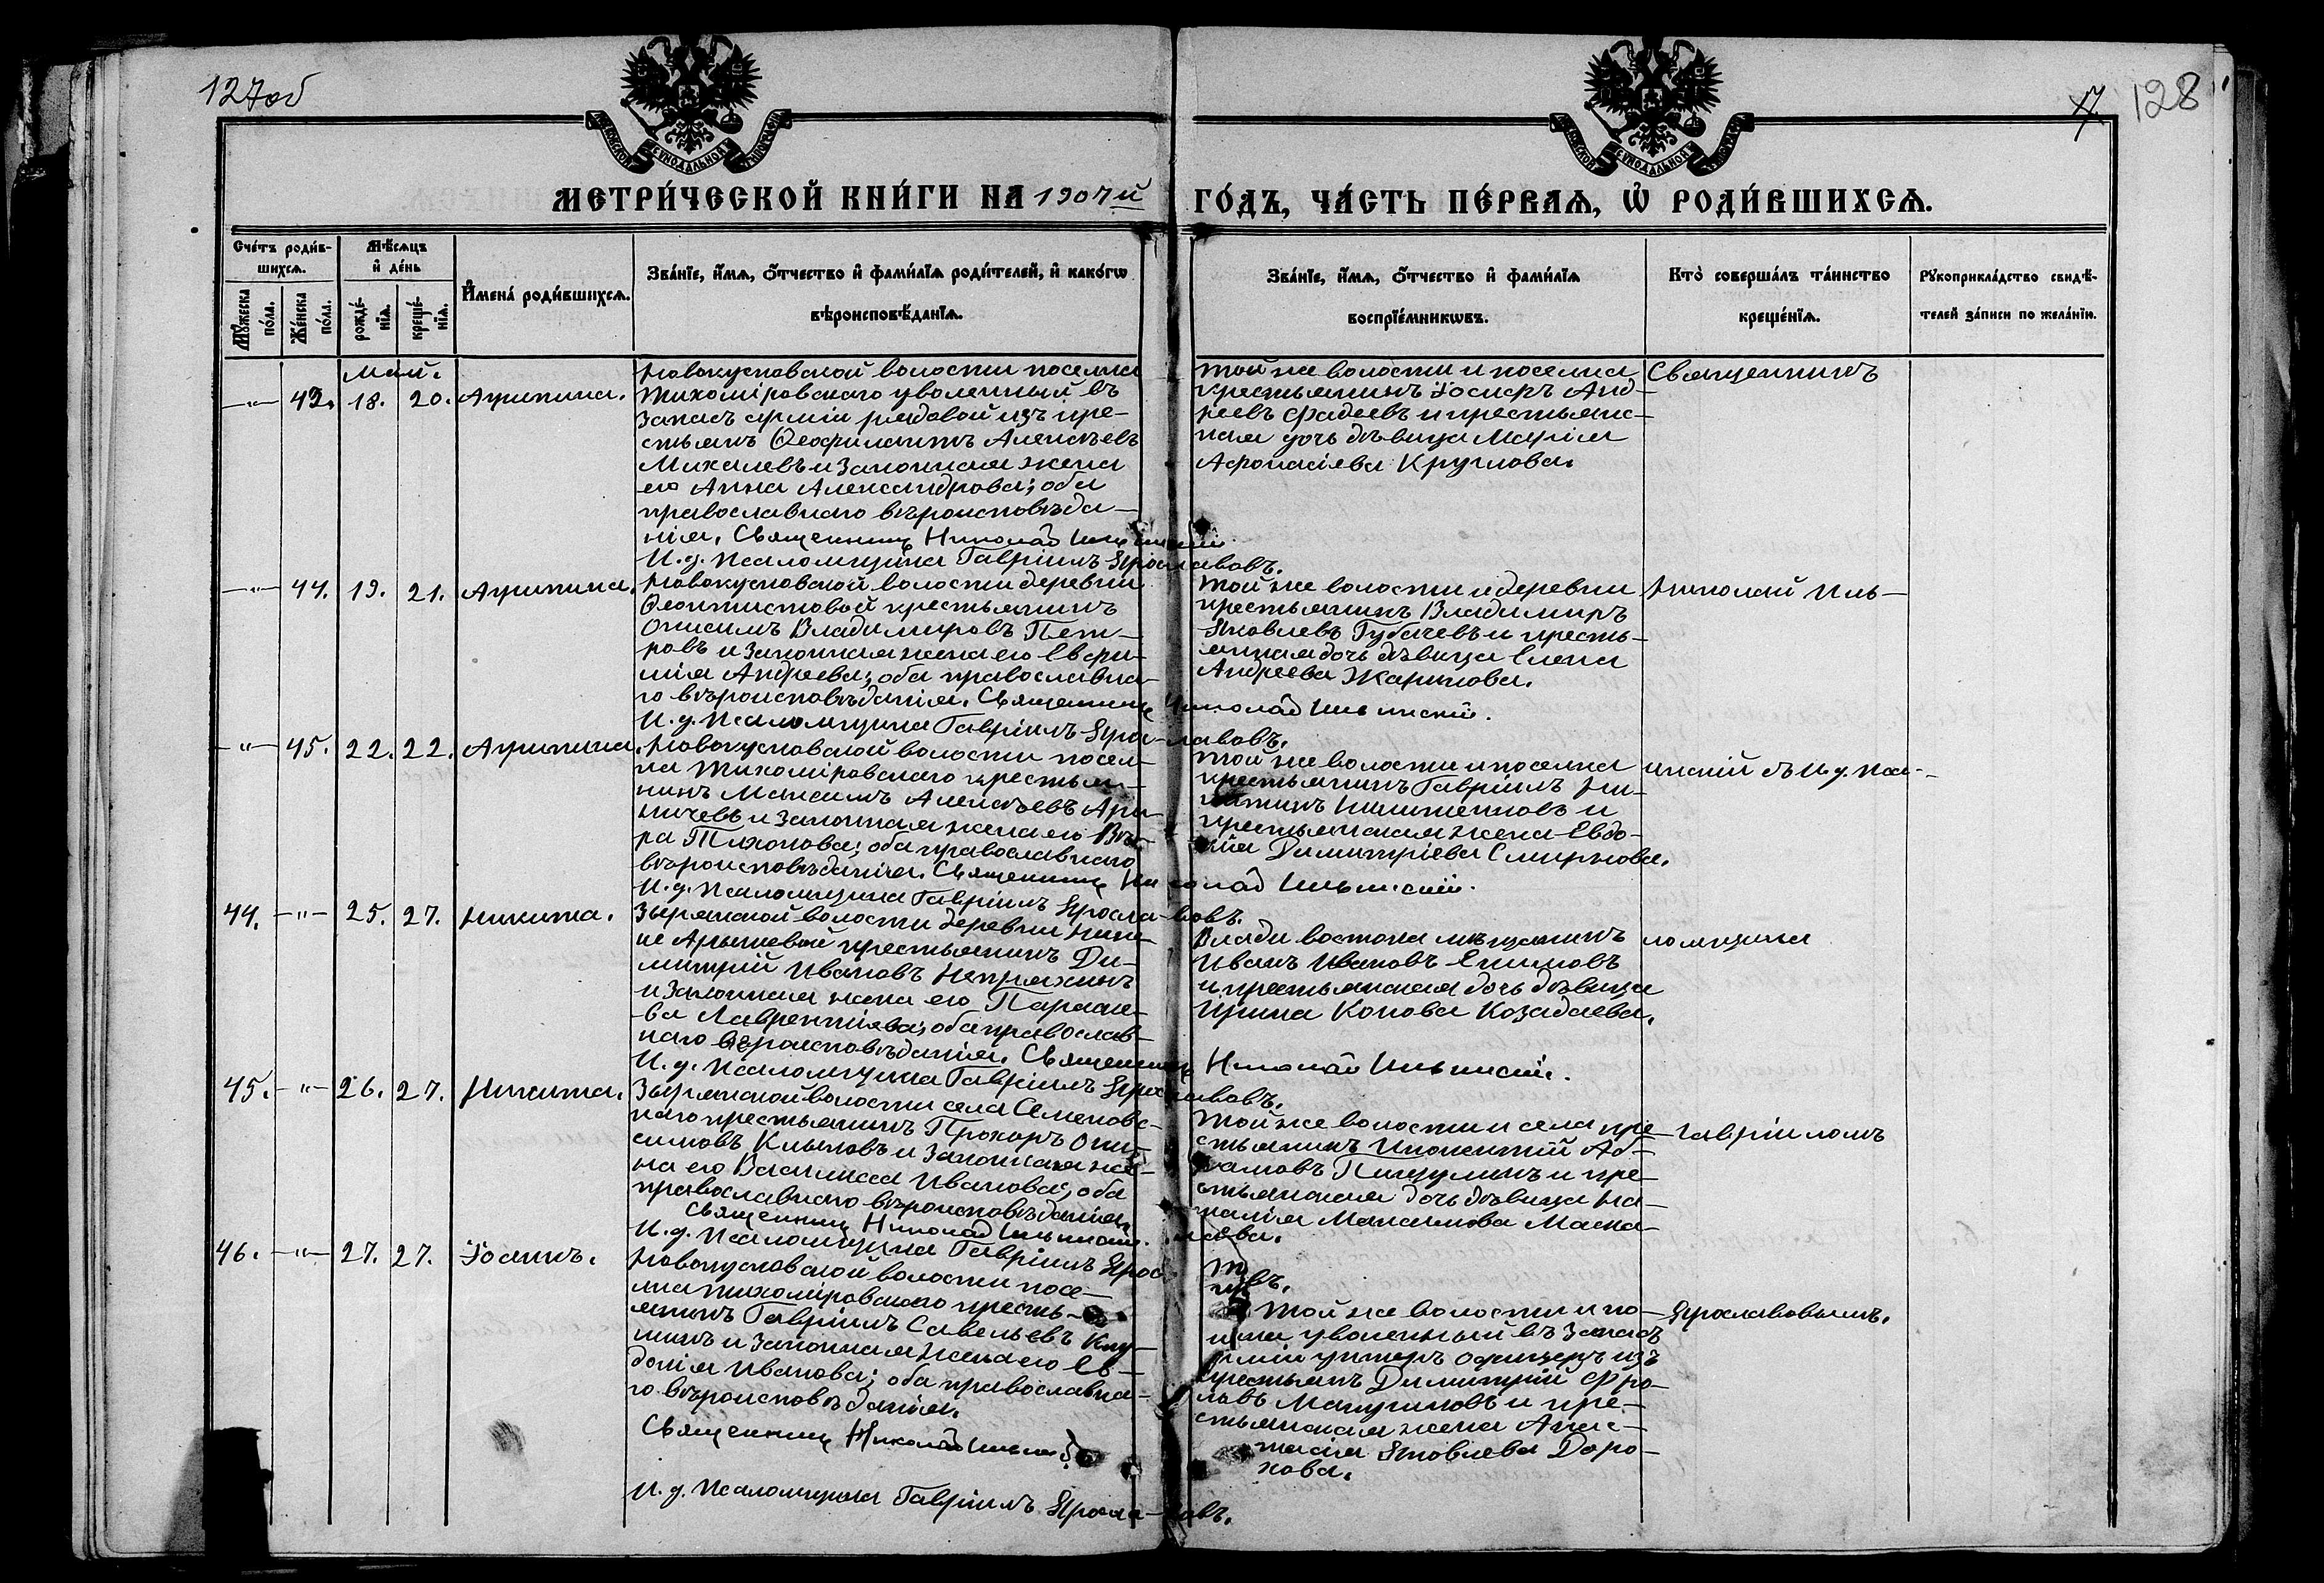 127об
128
МЕТРИ́ЧЕСКОЙ КНИ́ГИ НА 1907й ГО́ДЪ, ЧА́СТЬ ПЕ́РВАЯ, Ѡ РОДИ́ВШИХСЯ.
Сче́тъ роди́в-
шихся.
Му́жеска по́ла.
Же́нска по́ла.
Мѣ́сяцъ
и де́нь
рожде́-
нїя.
креще́-
нїя.
Имена́ роди́вшихся.
Зва́нїе, и́мя, о́тчество и фами́лїя роди́телей, и како́гѡ
вѣроисповѣ́данїя.
Зва́нїе, и́мя, о́тчество и фами́лїя
воспрїе́мникѡвъ.
Кто̀ соверша́лъ та́инство
креще́нїя.
Рꙋкоприкла́дство свидѣ́-
телей за́писи по жела́нїю.
Май.
—"— 43. 18. 20. Агрипина.
Новокусковской волости поселка
Тихоміровскаго уволенный въ
запасъ арміи рядовой изъ кре-
стьянъ Ѳеофилактъ Алексѣевъ
Михалевъ и законная жена
его Анна Александрова; оба
православнаго вѣроисповѣда-
нія. Священникъ Николай Ильинскій
И.д. псаломщика Гавріилъ Ярославовъ.
той же волости и поселка
крестьянинъ Іосифъ Анд-
реевъ Фадеевъ и крестьянс-
кая дочь дѣвица Марія
Афонасіева Круглова.
Священникъ
—"— 44. 19. 21. Агрипина.
Новокусковской волости деревни
Ѳеоктистовой крестьянинъ
Онисимъ Владимировъ Пет-
ровъ и законная жена его Евфи-
мія Андреева; оба православна-
го вѣроисповѣданія. Священникъ Николай Ильинскій.
И.д. псаломщика Гавріилъ Ярославовъ.
той же волости и деревни
крестьянинъ Владимиръ
Яковлевъ Губачевъ и кресть-
янская дочь дѣвица Елена
Андреева Жарикова.
Николай Иль-
—"— 45. 22. 22. Агрипина.
Новокусковской волости посел-
ка Тихоміровскаго крестья-
нинъ Максимъ Алексѣевъ
и законная жена его Вѣ-
ра Тихонова; оба православнаго
вѣроисповѣданія. Священникъ Николай Ильинскій.
И.д. псаломщика Гавріилъ Ярославовъ.
той же волости и поселка
крестьянинъ Гавріилъ Ни-
китинъ и
крестьянская жена Евдо-
кія Димитріева Смирнова.
инскій съ и.д. пса-
44. —"— 25. 27. Никита.
Зырянской волости деревни Ниж-
не Арышевой крестьянинъ Ди-
митрій Ивановъ Непряхинъ
и законная жена его Параске-
ва Лаврентіева; оба православ-
наго вѣроисповѣданія. Священникъ Николай Ильинскій.
И.д. псаломщика Гавріилъ Ярославовъ.
Владивостока мѣщанинъ
Иванъ Ивановъ Екимовъ
и крестьянская дочь дѣвица
Ирина Конова Козадаева.
ломщика
45. —"— 26. 27. Никита.
Зырянской волости села Семеновс-
каго крестьянинъ Прохоръ Они-
симовъ Клыковъ и законная же-
на его Василисса Иванова; оба
православнаго вѣроисповѣданія.
Священникъ Николай Ильинскій.
И.д. псаломщика Гавріилъ Ярославовъ.
той же волости и села кре-
стьянинъ Инокентій Аб-
рамовъ Пицулинъ и кре-
стьянская дочь дѣвица На-
талія Максимова Маска-
лева.
Гавріиломъ
46. —"— 27. 27. Іоаннъ.
Новокусковской волости посе-
лка Тихоміровскаго кресть-
янинъ Гавріилъ Савельевъ
и законная жена его Ев-
докія Иванова; оба православна-
го вѣроисповѣданія.
Священникъ Николай Ильинскій
И.д. псаломщика Гавріилъ Ярославовъ.
той же волости и по-
селка уволенный въ запасъ
арміи унтеръ офицеръ изъ
крестьянъ Димитрій Фро-
ловъ и кре-
стьянская жена Анас-
тасія Яковлева Доро-
хова.
Ярославовымъ.